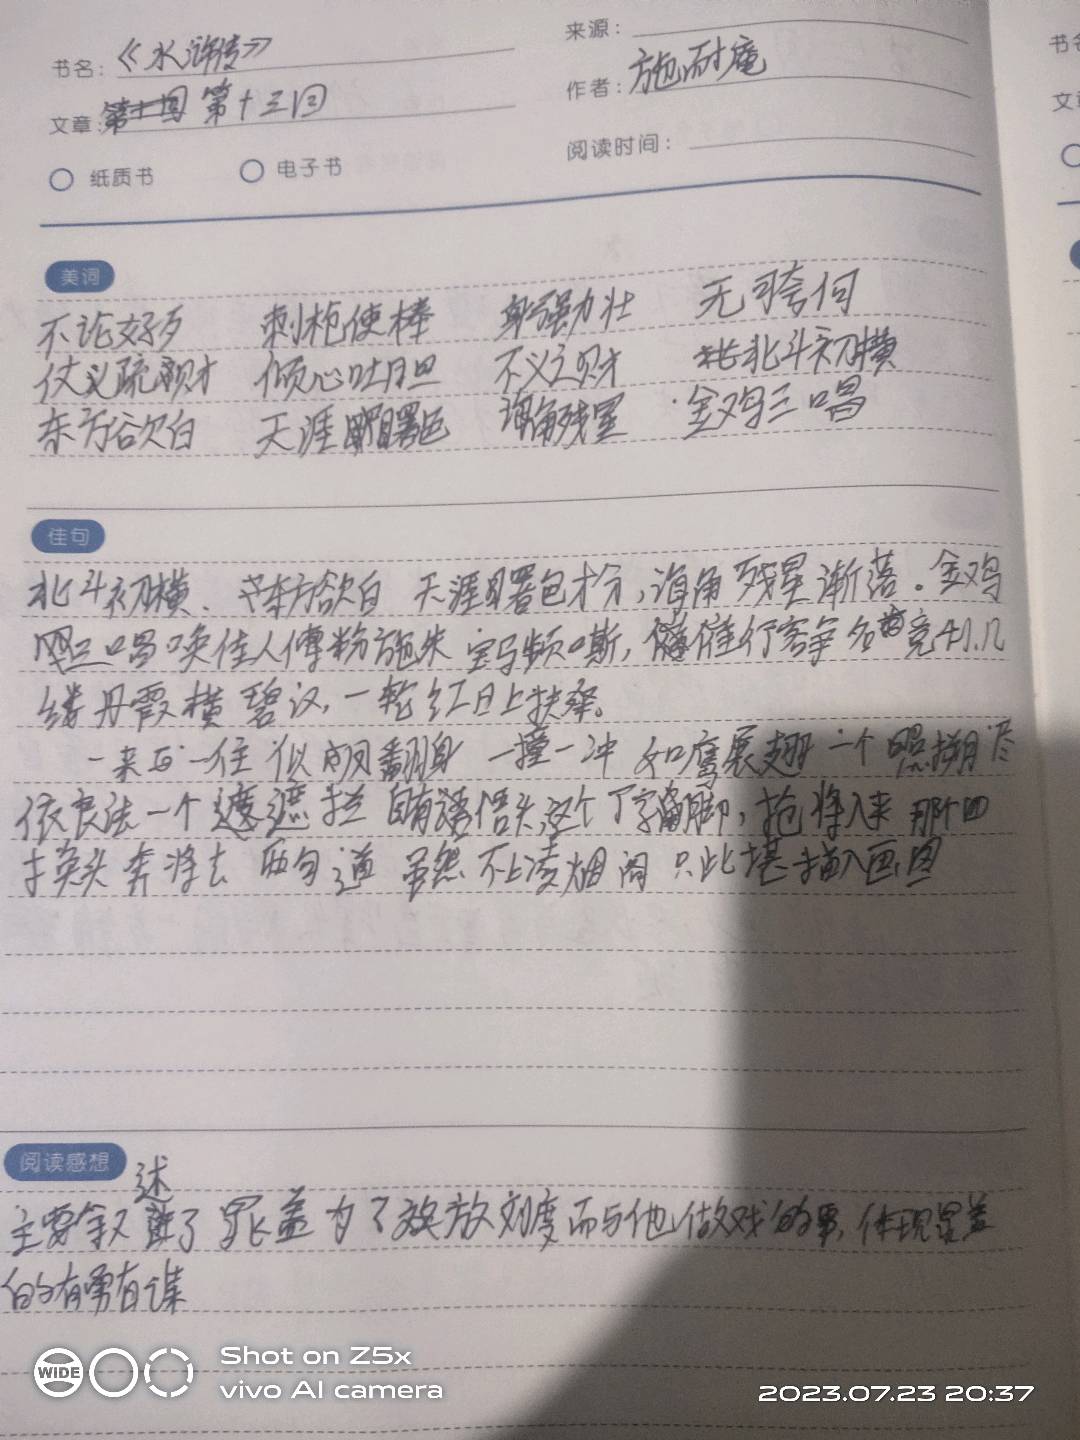 书名：《水浒传》
来源：
文章：第十三回
作者：施耐庵
纸质书 电子书
阅读时间：
美词
不论好歹 刺枪使棒 身强力壮 无可奈何
仗义疏财 倾心吐胆 不义之财 北斗初横
东方欲白 天涯曙色 海角残星 金鸡三唱
佳句
北斗初横、东方欲白 天涯曙色才分，海角残星渐落。金鸡
三唱唤佳人傅粉施朱 宝马频嘶，催行客争名竞利.几
缕丹霞横碧汉，一轮红日上扶桑。
一来一往 似凤翻身 一撞一冲 如鹰展翅 一个照搠尽
依良法一个遮拦自有悟头这个丁字脚，抢将入来 那个四
换头奔将去 两句道 虽然不上凌烟阁 只此堪描入画图
阅读感想
主要叙述了晁盖为了放刘度而与他做戏的事，体现晁盖
的有勇有谋
WIDE
Shot on Z5x
vivo AI camera
2023.07.23 20:37
书名
文章